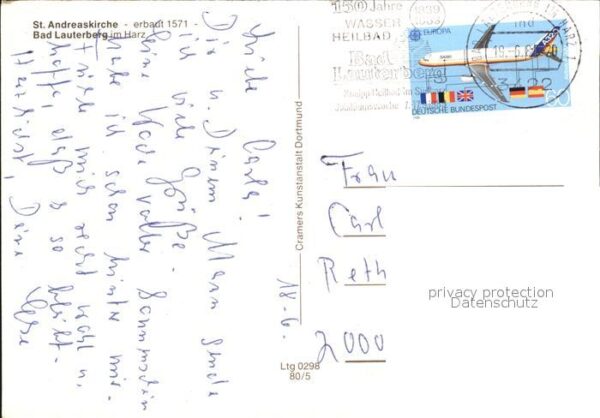 St. Andreaskirche - erbaut 1571 -
Bad Lauterberg im Harz
150 Jahre
WASSER
HEILBAD
1839
1989
Bad
Lauterberg
EUROPA
60
DEUTSCHE BUNDESPOST
Liebe Carla!
Dir u. Deinem Mann sende
ich viele Grüße.
Eine Woche voller Sonnenschein
habe ich schon hinter mir.
Fühle mich recht wohl u.
hoffe, daß es so bleibt.
Herzlichst, Deine
18.6.
Cramers Kunstanstalt Dortmund
Ltg 0298
80/5
Frau
Carl
Reth
2000
privacy protection
Datenschutz